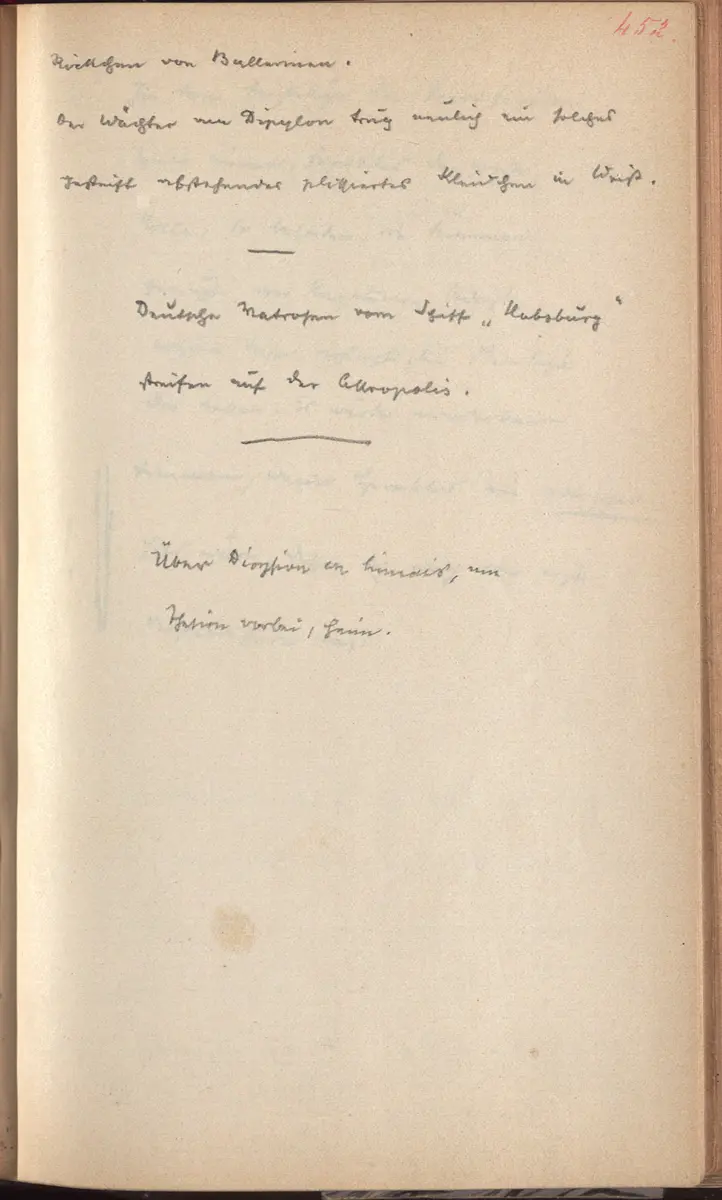 452.
Röckchen von Ballerinen.
Der Wächter am Dipylon trug neulich ein solches
gesteift abstehendes plissiertes Kleidchen in Weiß.
Deutsche Matrosen vom Schiff „Habsburg“
streifen auf der Akropolis.
Über Dionysion en limnais, am
Thesion vorbei, heim.